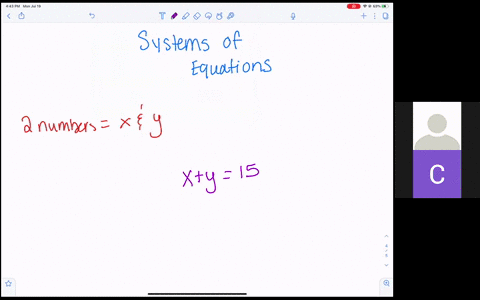 4:43 PM Mon Jul 19
Systems of
Equations
2 numbers = x & y
x + y = 15
C